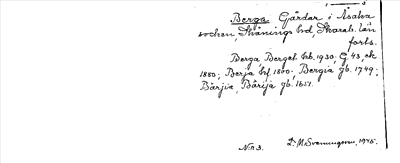 Berga Gårdar i Åsaka
socken, Skånings hd, Skarab. län
forts.
Berga Berget hb. 1930, G 43, ek
1880; Berja bf. 1800. Bergia gb. 1749.
Bärjia, Bärija gb. 1651.
N:o 3. D. M. Svenningson, 1945.